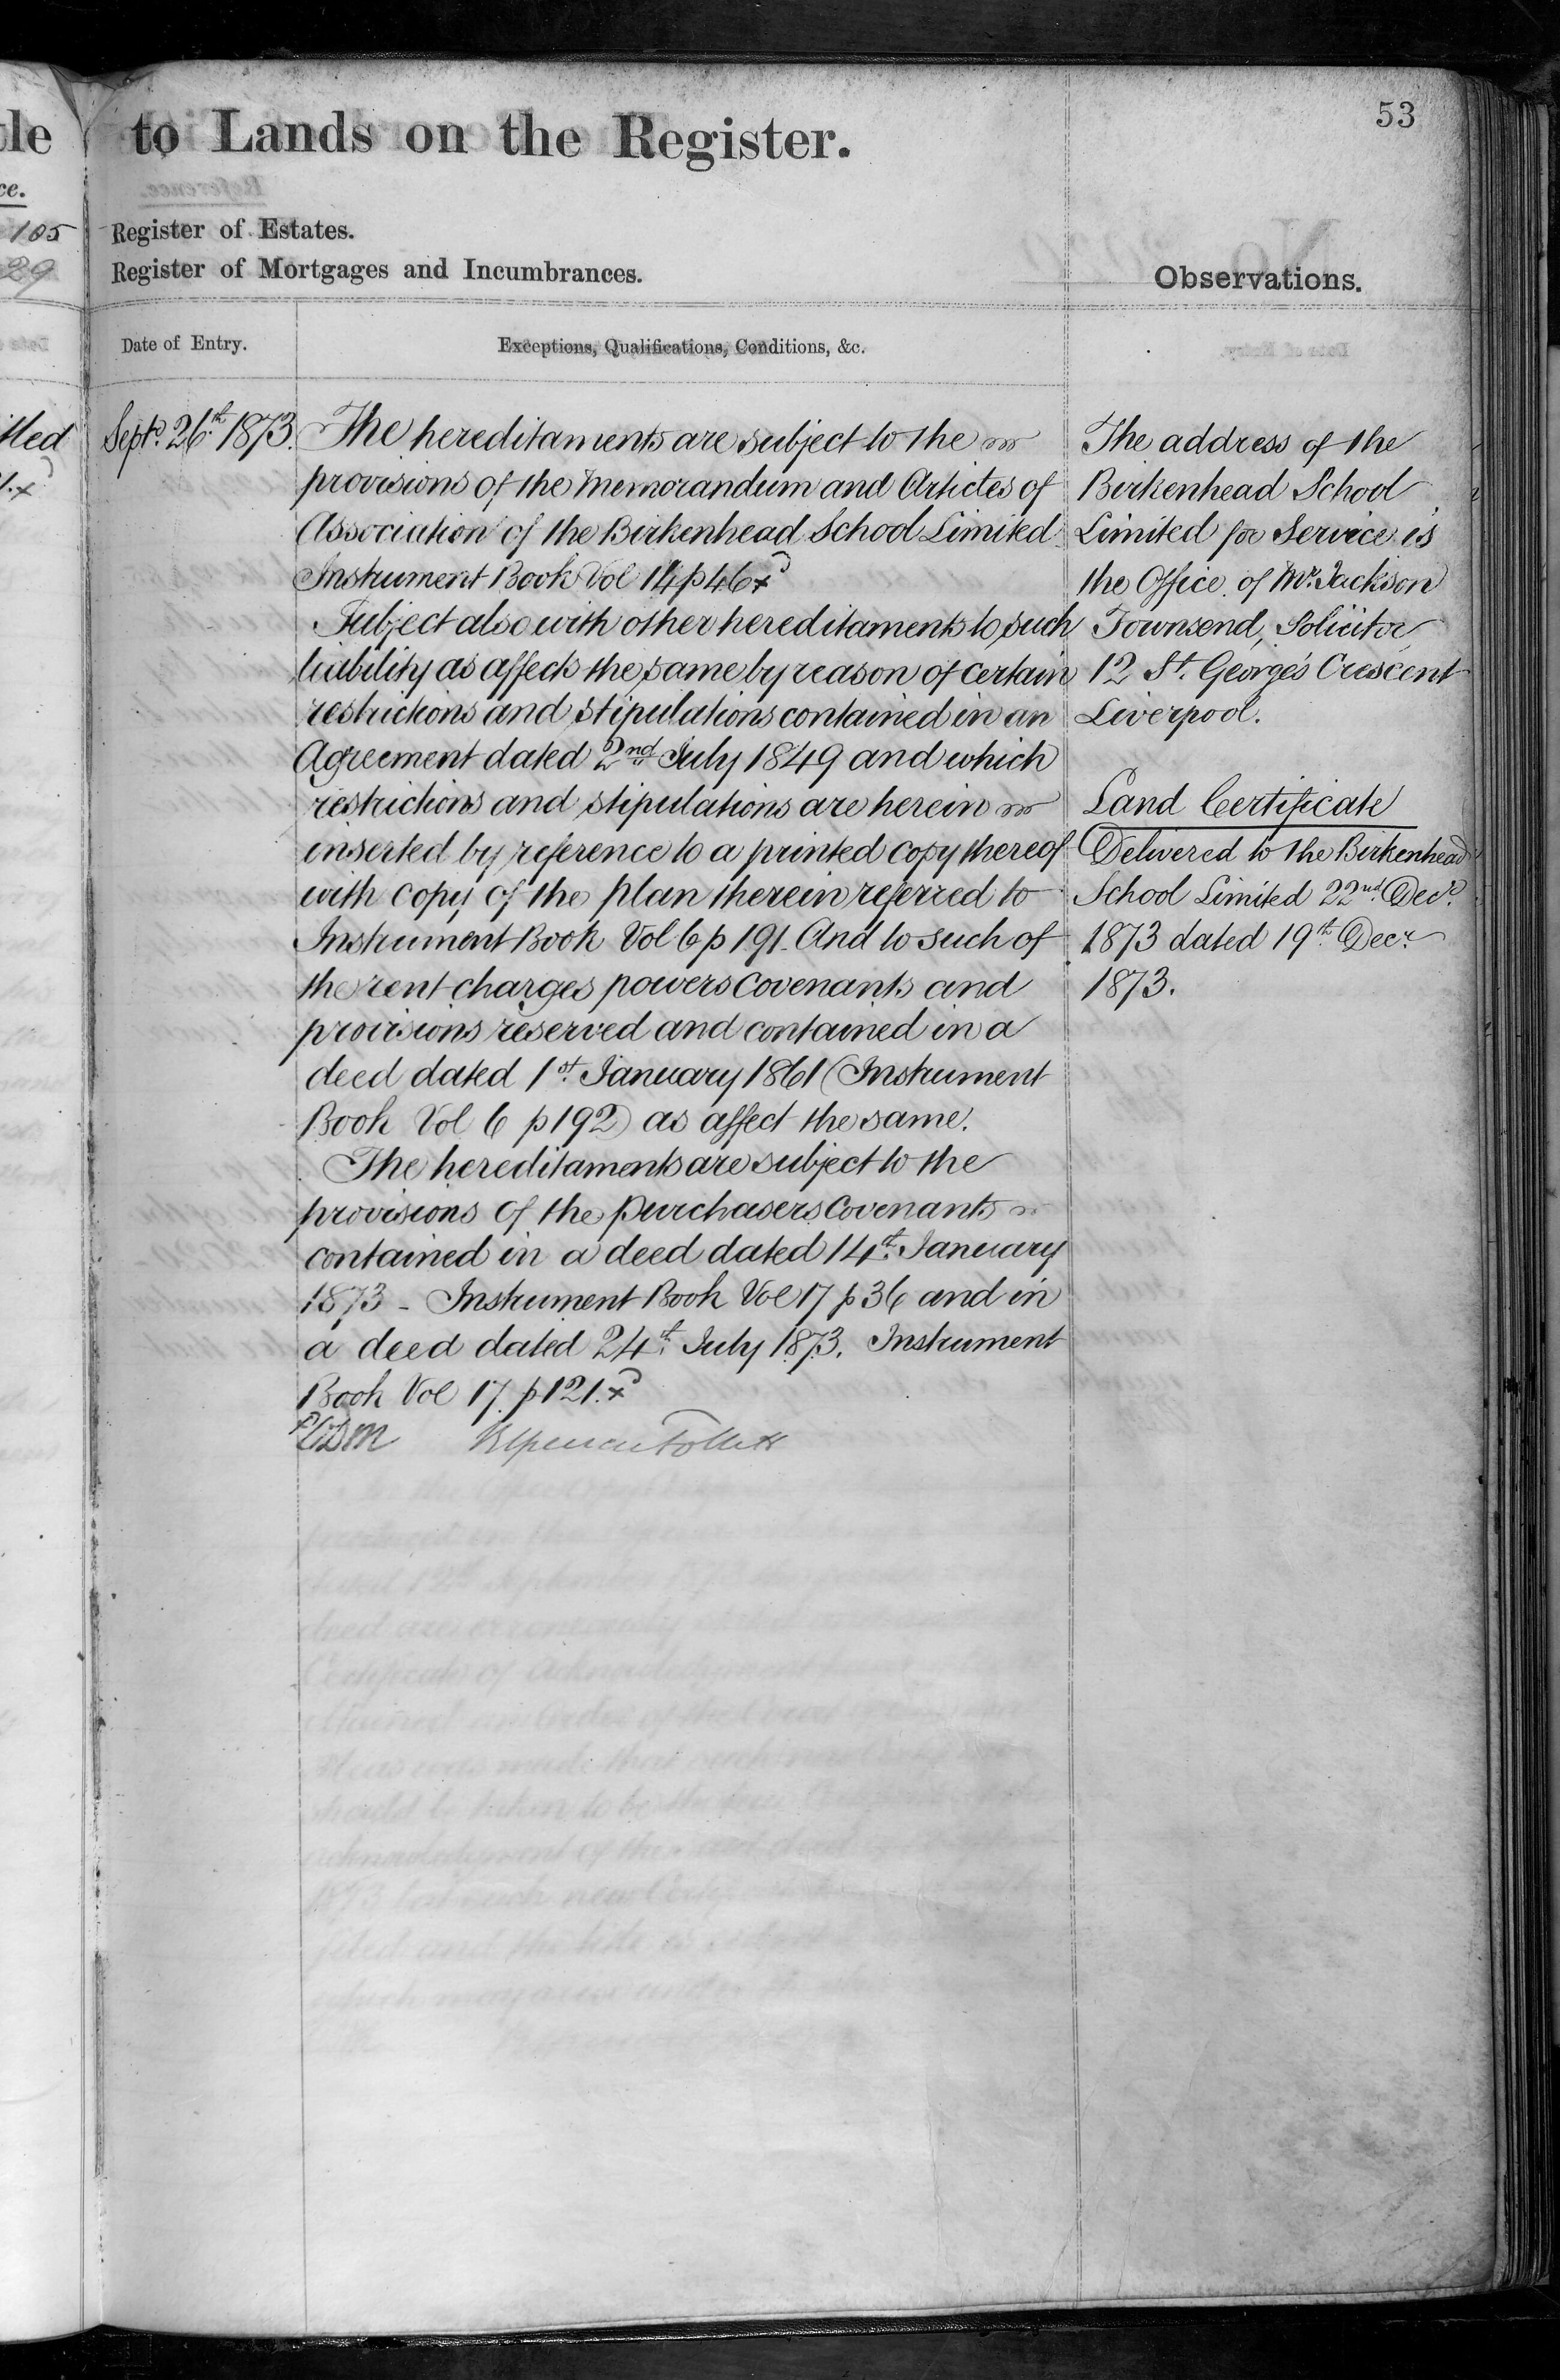 53
to Lands on the Register.
Register of Estates.
Register of Mortgages and Incumbrances.
Observations.
Date of Entry.
Exceptions, Qualifications, Conditions, &c.
Septr. 26th 1873.
The hereditaments are subject to the
provisions of the Memorandum and Articles of
Association of the Birkenhead School Limited
Instrument Book Vol 14 p 46 x
Subject also with other hereditaments to such
liability as affects the same by reason of certain
restrictions and stipulations contained in an
Agreement dated 2nd July 1849 and which
restrictions and stipulations are herein
inserted by reference to a printed copy thereof
with copy of the plan therein referred to
Instrument Book Vol 6 p 191. And to such of
the rent charges powers covenants and
provisions reserved and contained in a
deed dated 1st. January 1861 (Instrument
Book Vol 6 p 192) as affect the same.
The hereditaments are subject to the
provisions of the purchasers covenants
contained in a deed dated 14th. January
1873 - Instrument Book Vol 17 p 36 and in
a deed dated 24th. July 1873. Instrument
Book Vol 17. p 121. x
The address of the
Birkenhead School
Limited for Service is
the Office of Mr. Jackson
Townsend, Solicitor
12 St. George's Crescent
Liverpool.
Land Certificate
Delivered to the Birkenhead
School Limited 22nd. Decr.
1873 dated 19th. Decr.
1873.